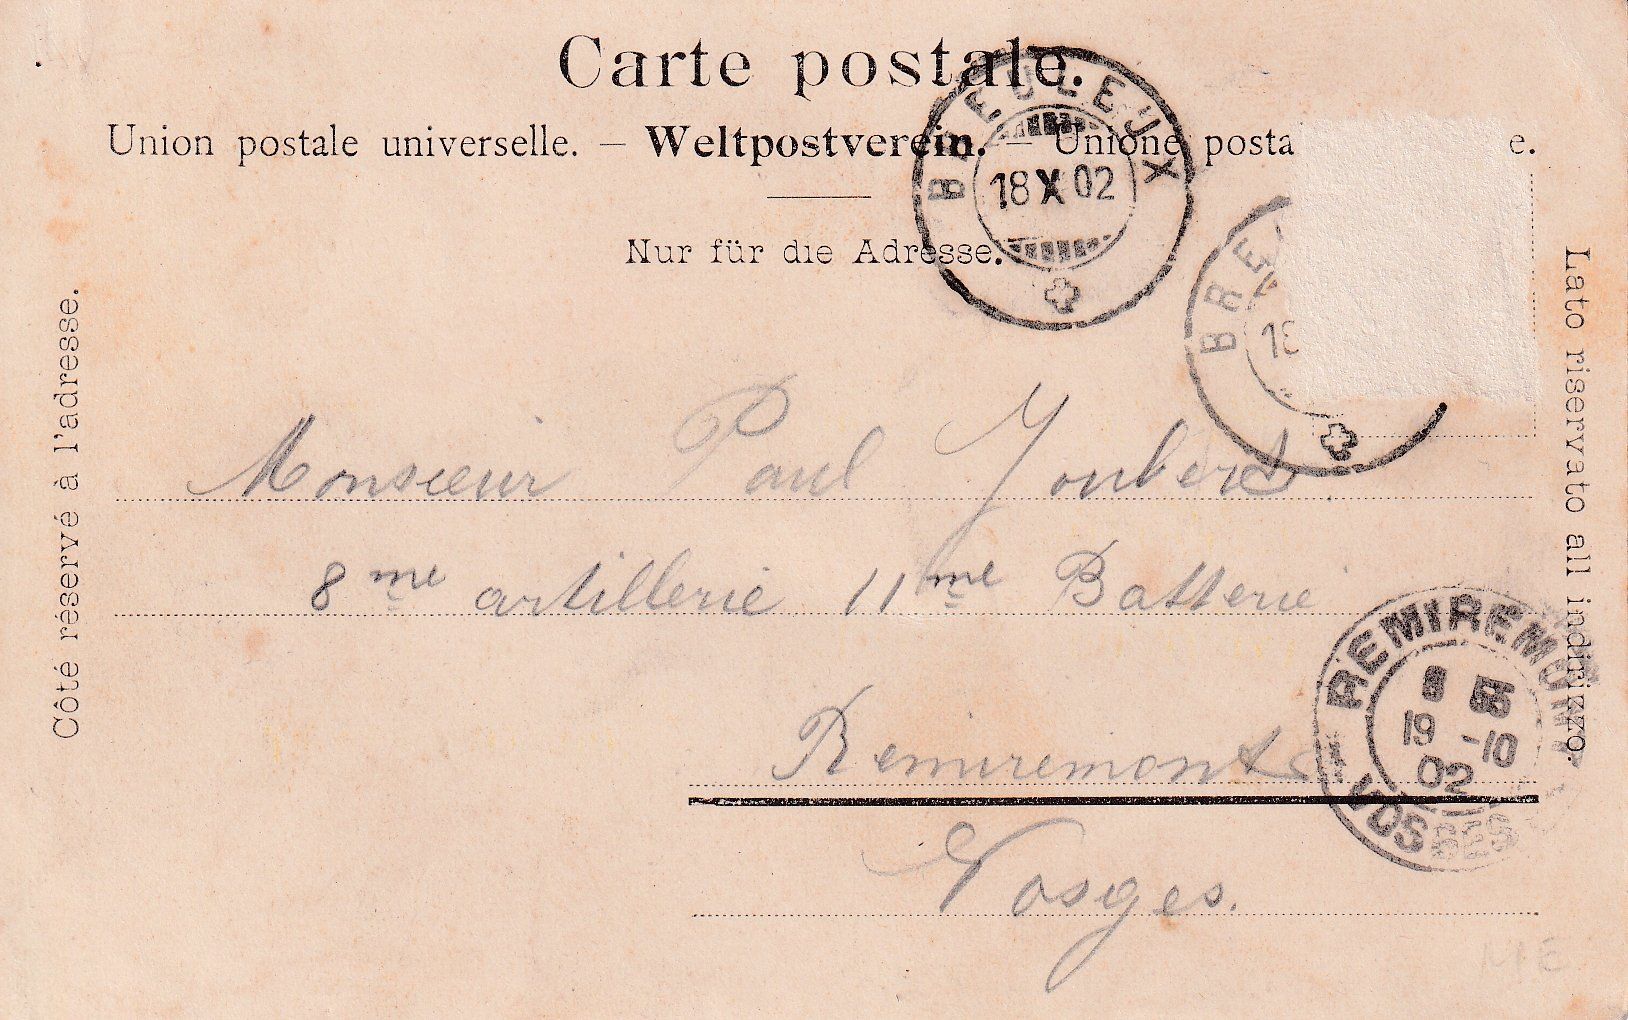 Carte postale.
Union postale universelle. – Weltpostverein. – Unione posta e.
Nur für die Adresse.
BREULEUX
18 X 02
BRE
18
Côté réservé à l'adresse.
Lato riservato all indirizzo
Monsieur Paul Joubert.
8me artillerie 11me Batterie
Remiremont
REMIREMONT
8 55
19 -10
02
VOSGES
Vosges.